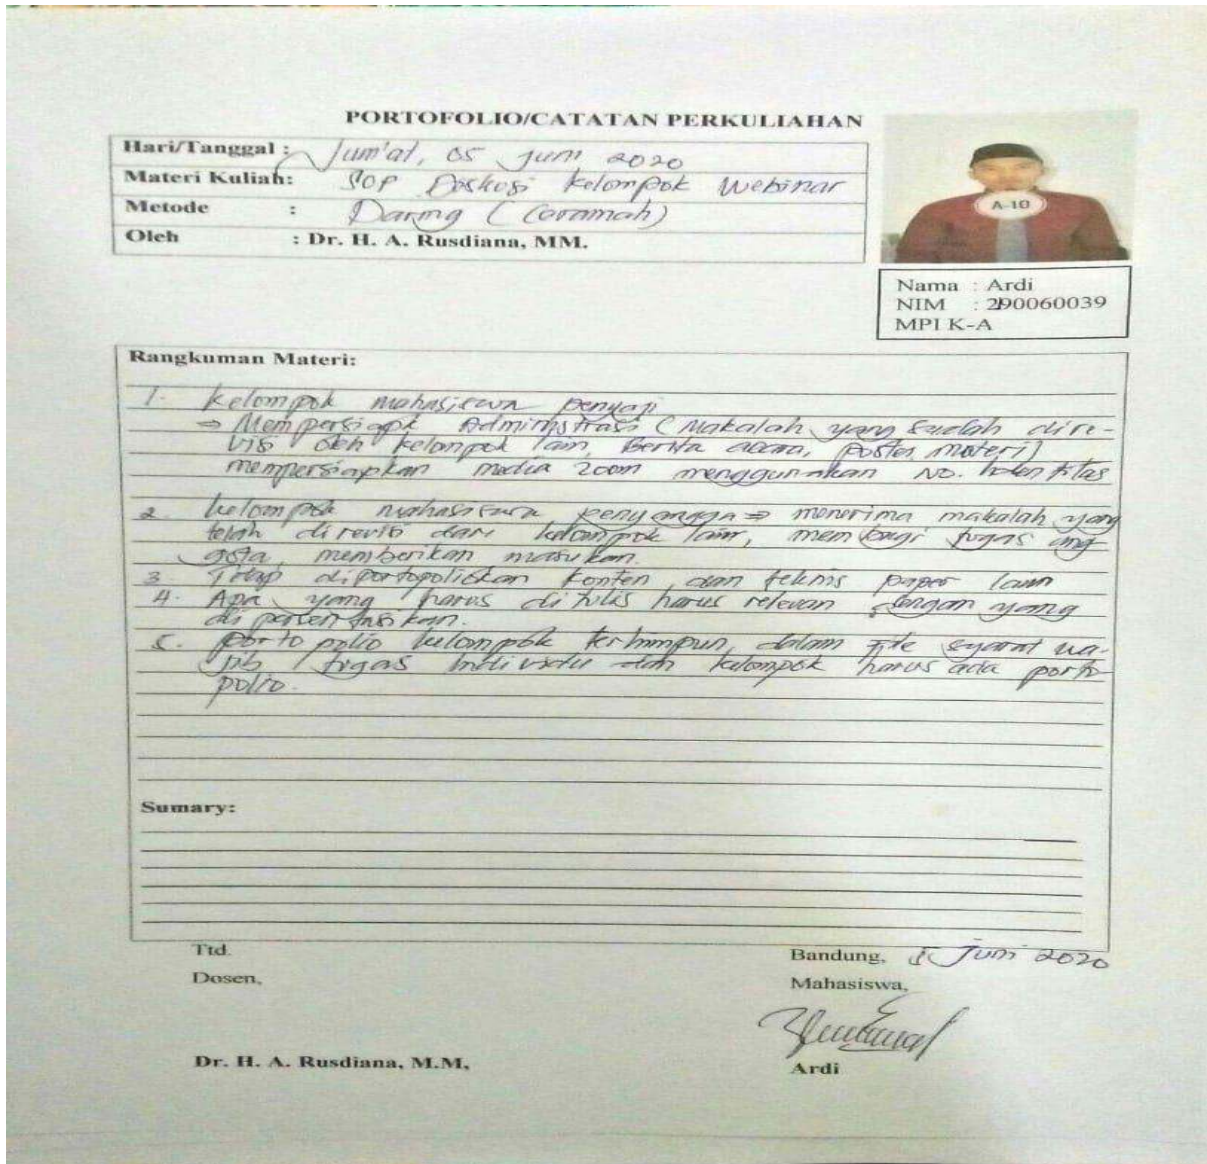 PORTOFOLIO/CATATAN PERKULIAHAN
Hari/Tanggal : Jum'at, 05 Juni 2020
Materi Kuliah: SOP Diskusi Kelompok Webinar
Metode : Daring (Ceramah)
Oleh : Dr. H. A. Rusdiana, MM.
A-10
Nama : Ardi
NIM : 290060039
MPI K-A
Rangkuman Materi:
1. Kelompok mahasiswa penyaji
⇒ Mempersiapk Administrasi (Makalah yang sudah dire-
visi oleh kelompok lain, Berita acara, poster, materi)
mempersiapkan media zoom menggunakan No. Identitas
2. kelompok mahasiswa penyangga ⇒ menerima makalah yang
telah direvisi dari kelompok lain, membagi tugas ang
gota, memberikan masukan.
3. Tetap diportopoliokan konten dan teknis paper lain
4. Apa yang harus ditulis harus relevan dengan yang
di persentasikan.
5. porto polio kelompok terhimpun dalam file syarat wa-
jib tugas Individu dan kelompok harus ada porto
polio.
Sumary:
Ttd.
Dosen,
Bandung, 5 Juni 2020
Mahasiswa,
Dr. H. A. Rusdiana, M.M,
Ardi